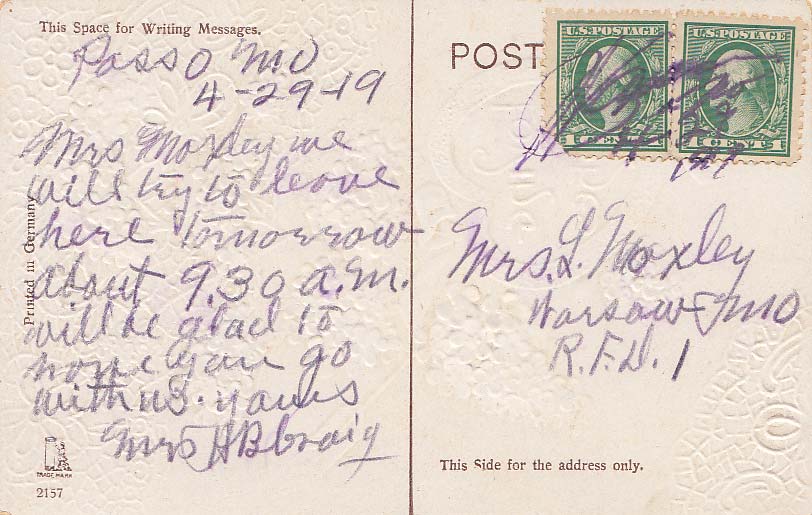 This Space for Writing Messages.
Passo Mo
4-29-19
Mrs Moxley we
will try to leave
here tomorrow
about 9.30 a.m.
will be glad to
have you go
with us. yours
Mrs H B Craig
Printed in Germany
TRADE MARK
2157
POST
U.S. POSTAGE
U.S. POSTAGE
Mrs. L. Moxley
Warsaw Mo
R.F.D. 1
This Side for the address only.